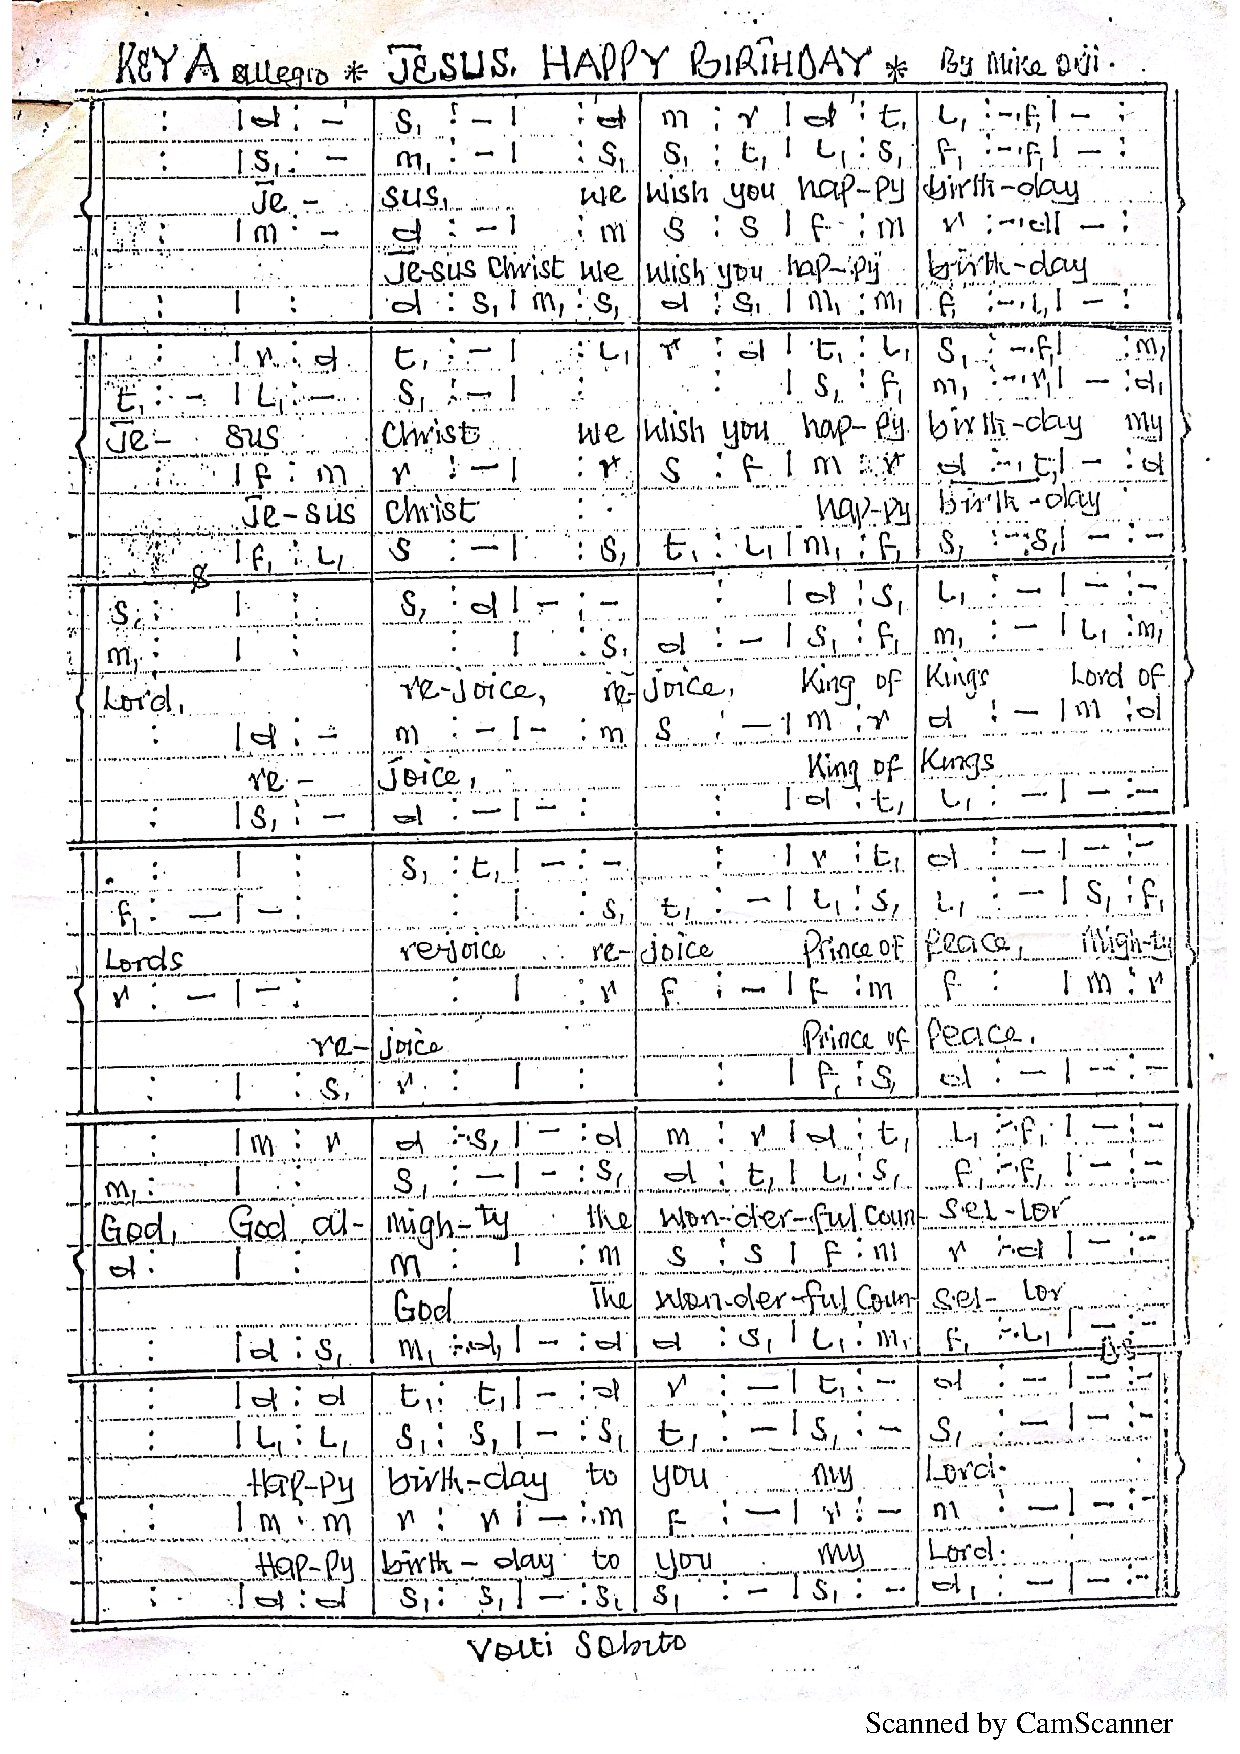 KEY A allegro * JESUS, HAPPY BIRTHDAY * By Mike Diji.
: | d : - | s₁ : - | : d | m : r | d : t₁ | L₁ : -.f₁ | - :
: | s₁ : - | m₁ : - | : s₁ | s₁ : t₁ | L₁ : s₁ | f₁ : -.f₁ | - :
Je - sus, we wish you hap-py birth-day
: | m : - | d : - | : m | s : s | f : m | r : -.d | - :
Je-sus Christ we wish you hap-py birth-day
: | : | d : s₁ | m₁ : s₁ | d : s₁ | m₁ : m₁ | f₁ : -.L₁ | - :
: | r : d | t₁ : - | : L₁ | r : d | t₁ : L₁ | s₁ : -.f₁ | : m₁
t₁ : - | L₁ : - | s₁ : - | : | : | s₁ : f₁ | m₁ : -.r₁ | - : d₁
Je- sus Christ we wish you hap-py birth-day my
: | f : m | r : - | : r | s : f | m : r | d : -.t₁ | - : d
Je-sus Christ hap-py birth-day
: | f₁ : L₁ | s : - | : s₁ | t₁ : L₁ | m₁ : f₁ | s₁ : -.s₁ | - : -
s₁ : | : | s₁ : d | - : - | : | d : s₁ | L₁ : - | - : -
m₁ : | : | : | : s₁ | d : - | s₁ : f₁ | m₁ : - | L₁ : m₁
Lord, re-joice, re-joice, King of Kings Lord of
: | d : - | m : - | - : m | s : - | m : r | d : - | m : d
re - joice, King of Kings
: | s₁ : - | d : - | - : | : | d : t₁ | L₁ : - | - : -
: | : | s₁ : t₁ | - : - | : | r : t₁ | d : - | - : -
f₁ : - | - : | : | : s₁ | t₁ : - | L₁ : s₁ | L₁ : - | s₁ : f₁
Lords rejoice re-joice Prince of Peace, Migh-ty
r : - | - : | : | : r | f : - | f : m | f : | m : r
re-joice Prince of Peace.
: | : s₁ | r : | : | : | f₁ : s₁ | d : - | - : -
: | m : r | d : -.s₁ | - : d | m : r | d : t₁ | L₁ : -.f₁ | - : -
m₁ : | : | s₁ : - | - : s₁ | d : t₁ | L₁ : s₁ | f₁ : -.f₁ | - : -
God, God al- migh-ty the won-der-ful Coun- sel-lor
d : | : | m : | : m | s : s | f : m | r : -.d | - : -
God The won-der-ful Coun- sel- lor
: | d : s₁ | m₁ : -.d₁ | - : d | d : s₁ | L₁ : m₁ | f₁ : -.L₁ | - : -
DS
: | d : d | t₁ : t₁ | - : d | r : - | t₁ : - | d : - | - : -
: | L₁ : L₁ | s₁ : s₁ | - : s₁ | t₁ : - | s₁ : - | s₁ : - | - : -
Hap-py birth-day to you my Lord.
: | m : m | r : r | - : m | f : - | r : - | m : - | - : -
Hap-py birth - day to you my Lord.
: | d : d | s₁ : s₁ | - : s₁ | s₁ : - | s₁ : - | d₁ : - | - : -
Volti Sobito
Scanned by CamScanner